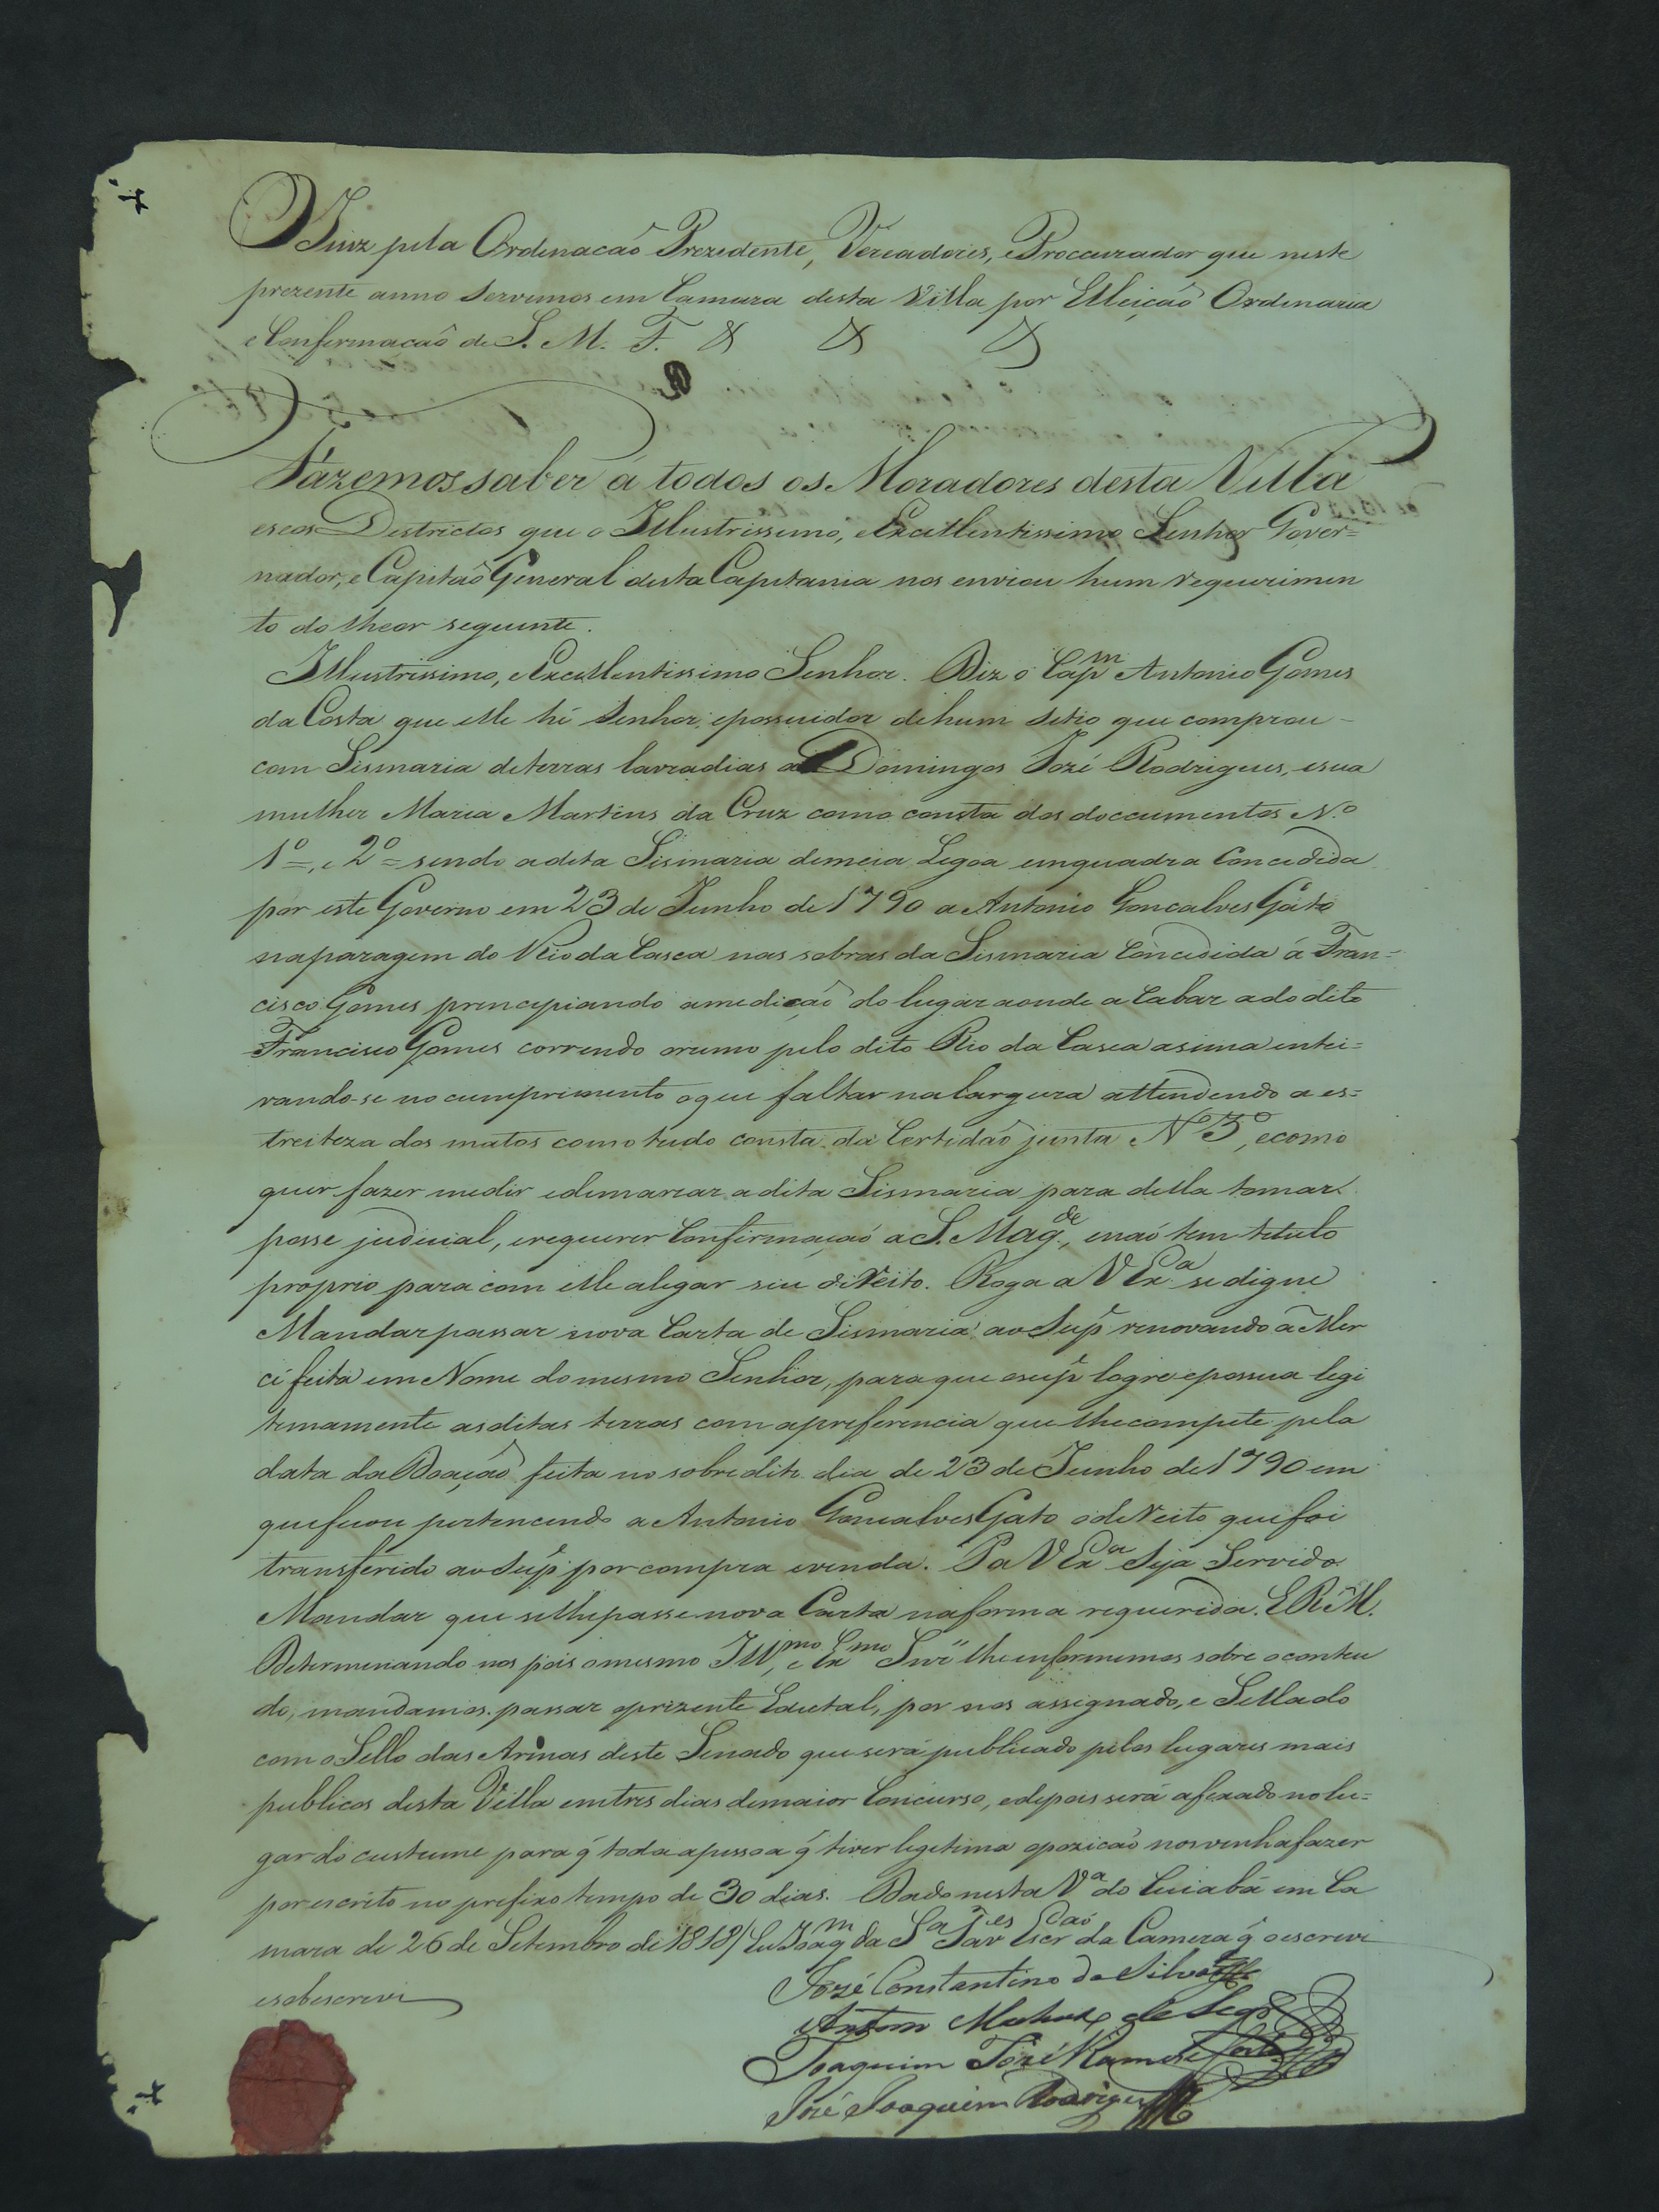 O Juiz pela Ordenacaõ Prezidente, Vereadores, eProccurador que neste
prezente anno servimos em Camara desta Villa por Elleiçaõ Ordenaria
e Confirmaçaõ de S. M. F. & & &
Fázemos saber á todos os Moradores desta Villa
eseos Destrictos que o Illustrissimo, eExcellentissimo Senhor Gover=
nador, e Capitaõ General desta Capitania nos enviou hum requerimen
to do theor seguinte.
Illustrissimo, eExcellentissimo Senhor. Diz o Cap.m Antonio Gomes
da Costa que elle hé Senhor, epossuidor dehum sitio que comprou
com Sismaria deterras lavradias a Domingos José Rodrigues, esua
mulher Maria Martins da Cruz como consta dos doccumentos N.o
1º=, e 2º= sendo adita Sismaria demeia Legoa emquadra Concedida
por este Governo em 23 de Junho de 1790 a Antonio Goncalves Gato
naparagem do Rio da Casca nas sobras da Sismaria Concedida á Fran=
cisco Gomes principiando amediçaõ do lugar aonde a Cabar ado dito
Francisco Gomes correndo orumo pelo dito Rio da Casca asima intei=
rando-se no cumprimento oque faltar nalargura attendendo a es=
treiteza dos matos como tudo consta da Certidaõ junta Nº 3º, ecomo
quer fazer medir edemarcar adita Sismaria para della tomar
posse judicial, erequerer Confirmaçaõ a S. Mag.de, enaõ tem titulo
proprio para com elle alegar seu direito. Roga a V Ex.a se digne
Mandar passar nova Carta de Sismaria ao Sup.e renovando a Mer
cê feita em Nome do mesmo Senhor, para que osup.e logre epossua legi
timamente asditas terras com apreferencia que lhecompete pela
data da Doaçaõ feita no sobredito dia de 23 de Junho de 1790 em
queficou pertencendo a Antonio Goncalves Gato odireito que foi
transferido ao Sup.e por compra evenda. P a V Ex.a Seja Servido
Mandar que selhepasse nova Carta naforma requerida. E R M.
Determinando nos pois omesmo Ill.mo, e Ex.mo Snr lheinformemos sobre oconteu
do, mandamos passar oprezente Edictal, por nos assignado, e Sellado
com o Sello das Armas deste Senado que será publicado pelos lugares mais
publicos desta Villa emtres dias demaior Concurso, edepois será afixado nolu=
gar do custume para q̃ toda apessoa q̃ tiver legitima opozicaõ nosvenhafazer
porescrito no prefixo tempo de 30 dias. Dado nesta V.a do Cuiabá em Ca
mara de 26 de Setembro de 1818/ Eu Joaq.m da S.a Tav.es Escr.aõ da Camera q̃ o escrevi
esobescrevi
José Constantino da Silva
Joaquim José Ramos
José Joaquim Rodrigues